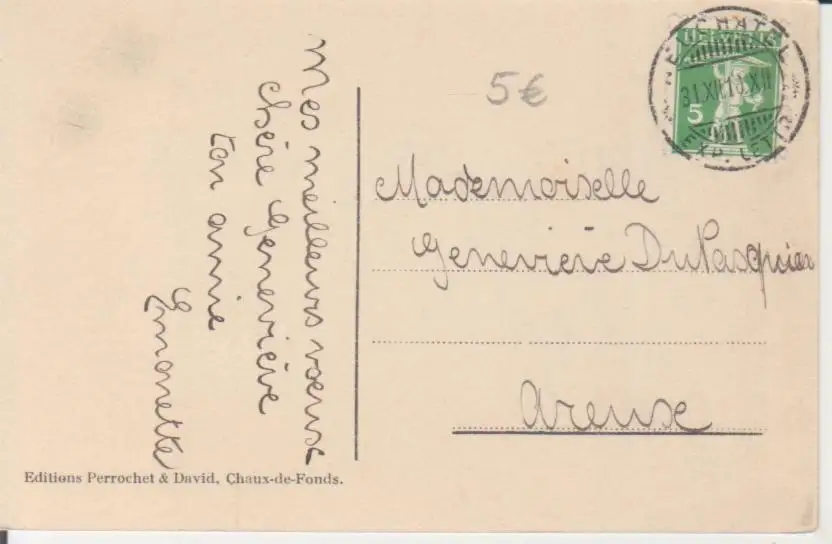 Mes meilleurs voeux
chère Geneviève
ton amie
Emonette
5€
HELVETIA
5
NEUCHATEL
31.XII.13.XII
EXP. LET.
Mademoiselle
Geneviève DuPasquier
Areuse
Editions Perrochet & David, Chaux-de-Fonds.